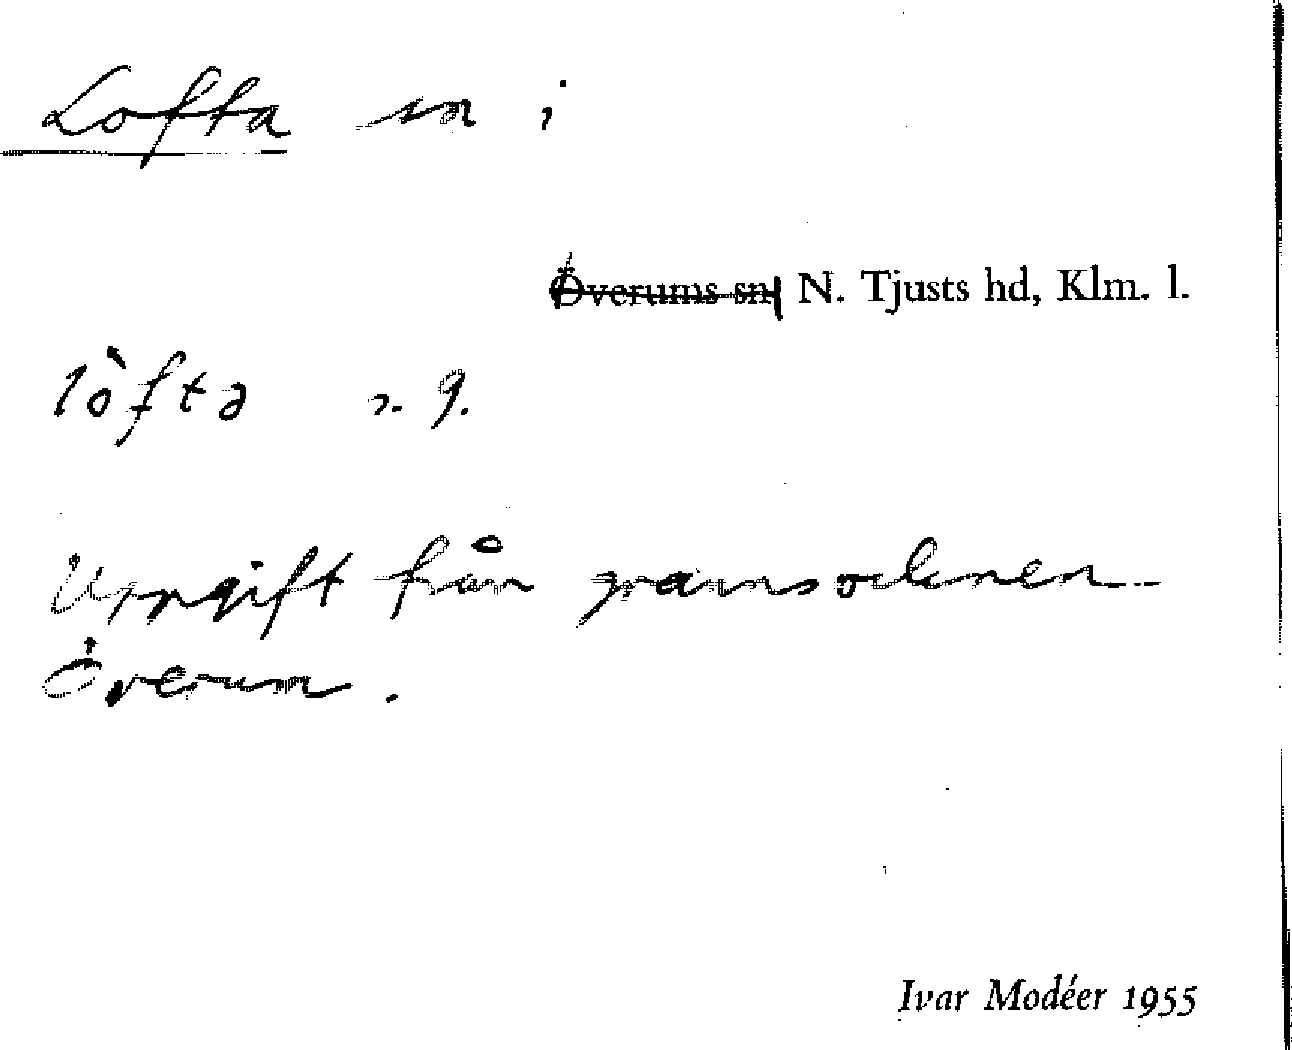 Lofta sn i
Överums sn, N. Tjusts hd, Klm. l.
lòfta
Uppgift från grannsocknen
Överum.
Ivar Modéer 1955